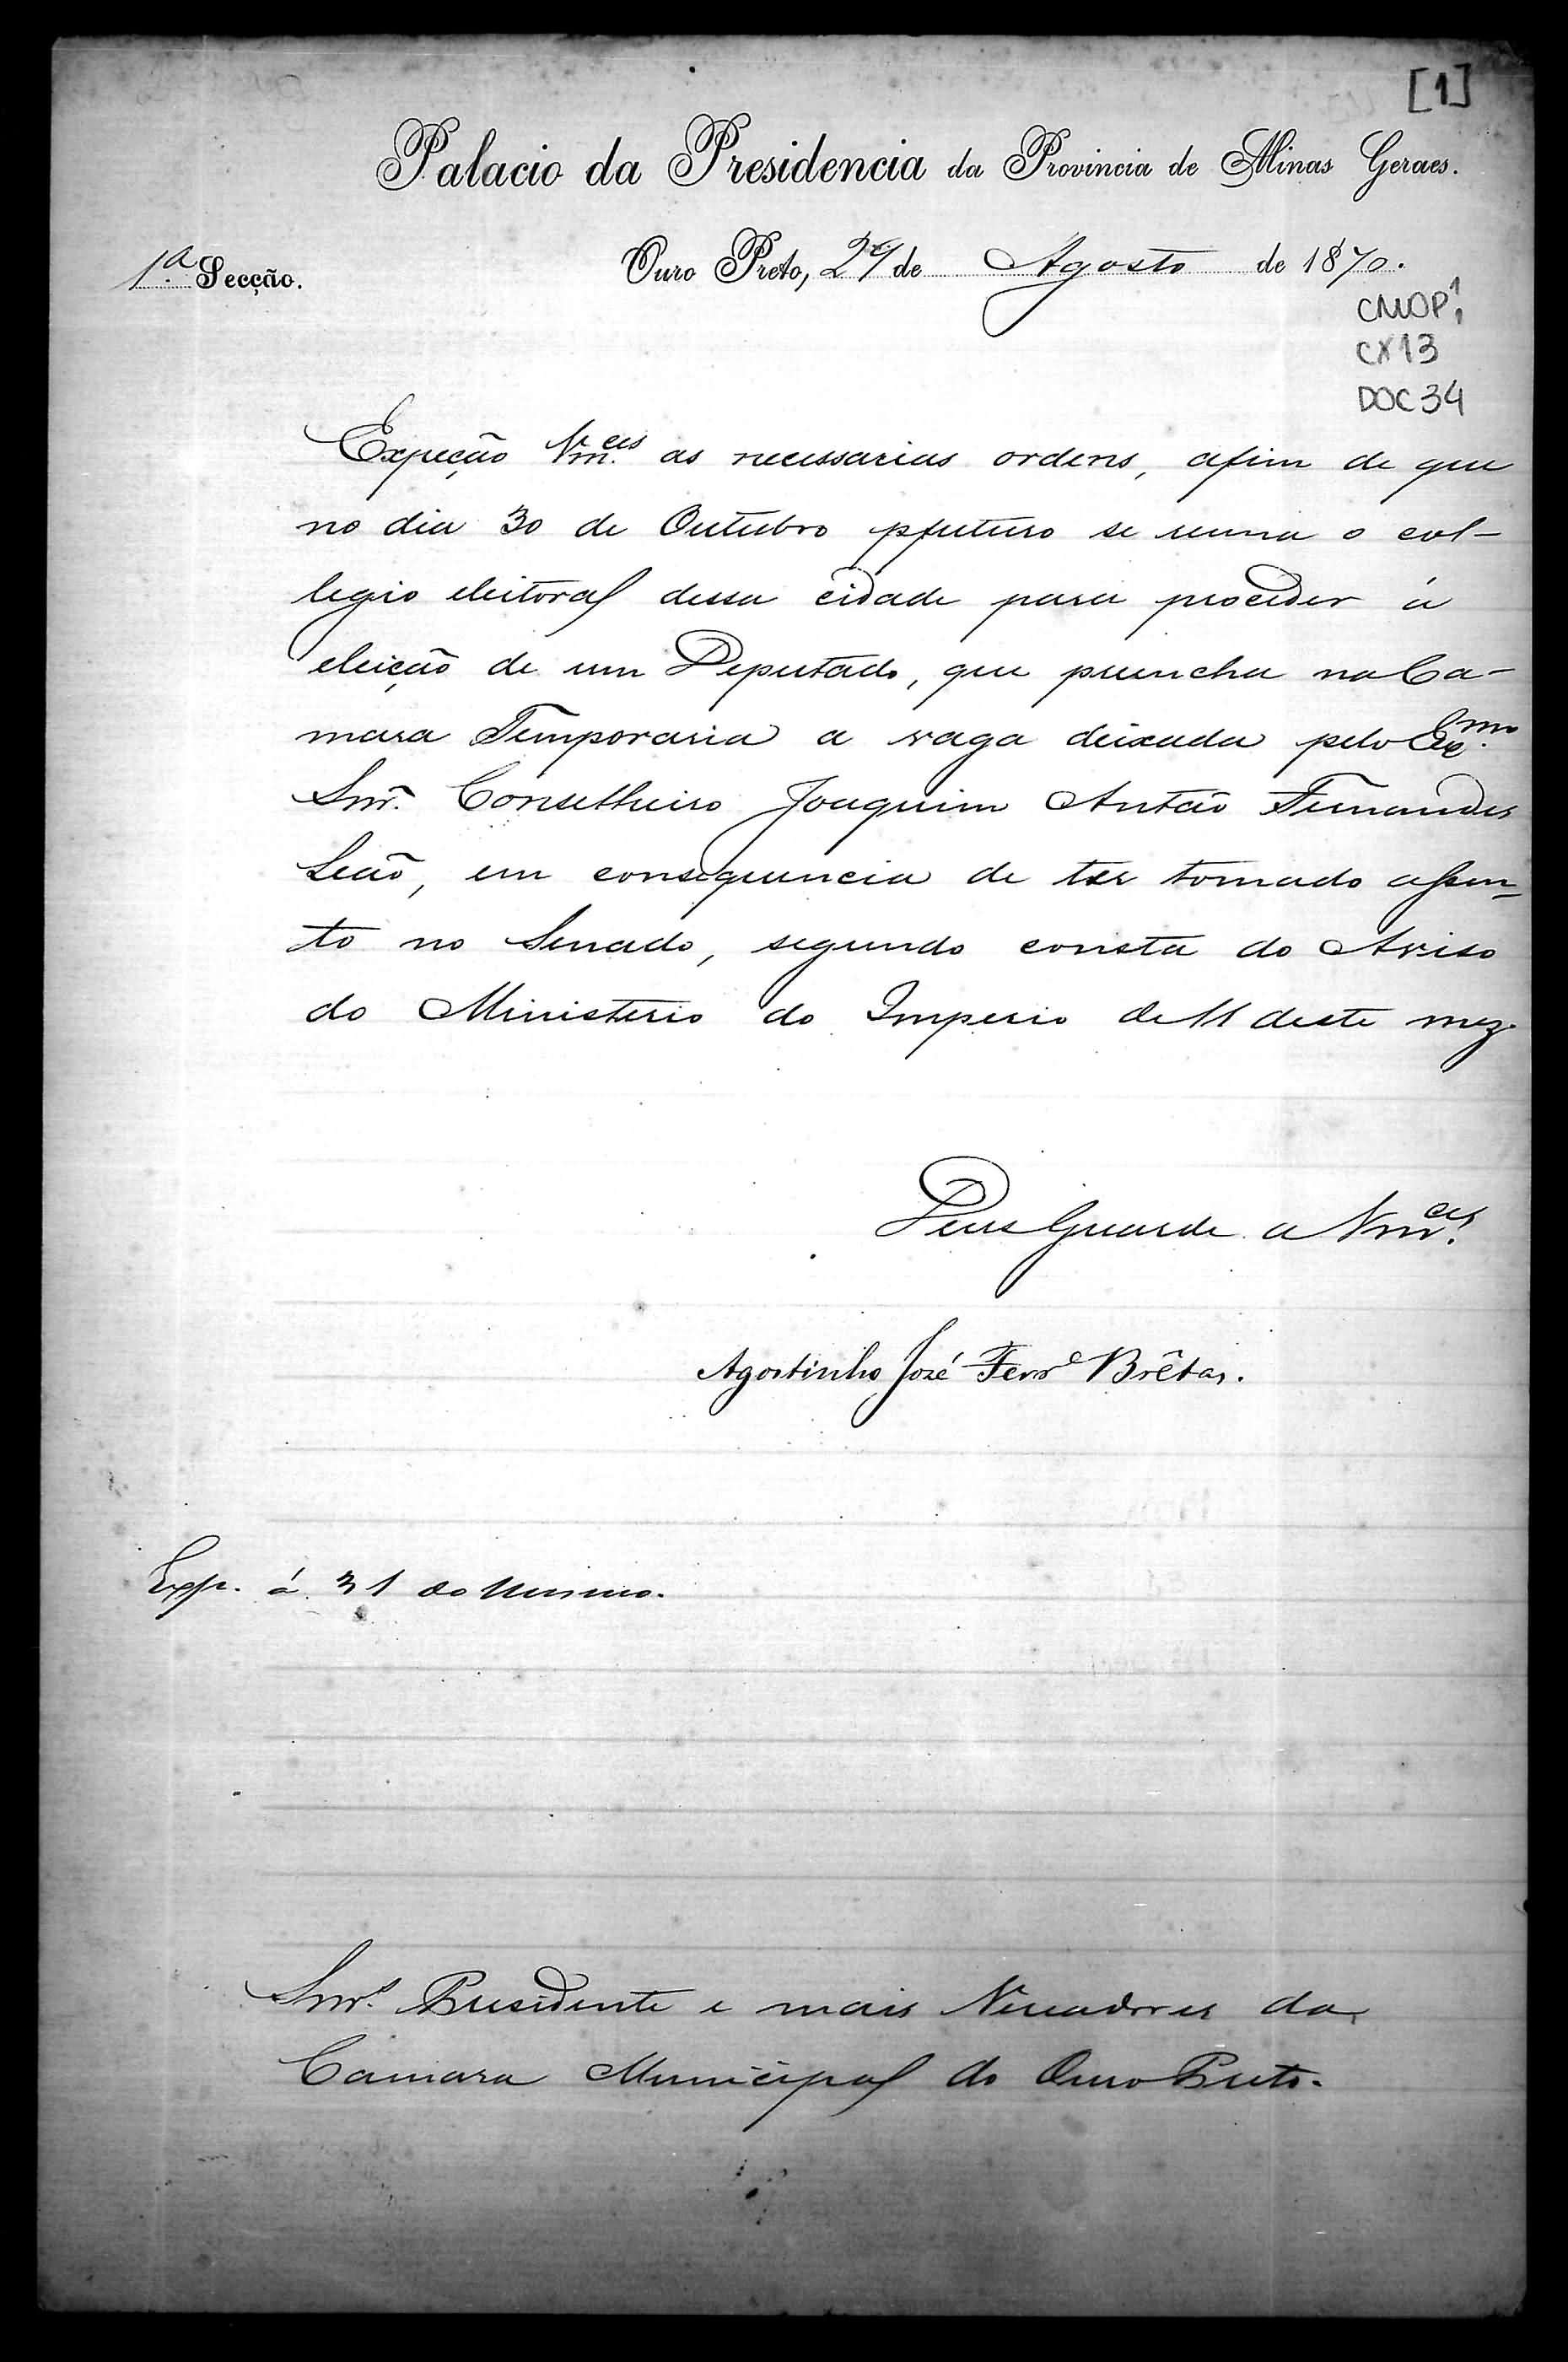 [1]
Palacio da Presidencia da Provincia de Minas Geraes.
1.ª Secção.
Ouro Preto, 29 de Agosto de 1870.
CMOP 1
CX 13
DOC 34
Expeção Vm.ces as necessarias ordens, afim de que
no dia 30 de Outubro pfuturo se reuna o col-
legio eleitoral dessa cidade para proceder á
eleição de um Deputado, que preencha na Ca-
mara Temporaria a vaga deixada pelo Ex.mo
Snr. Conselheiro Joaquim Antão Fernandes
Leão, em consequencia de ter tomado assen-
to no Senado, segundo consta do Aviso
do Ministerio do Imperio de 11 deste mez.
Deus Guarde a Vm.ces
Agostinho José Ferr.ª Brêtas.
Exp. á 31 do mesmo.
Snr.s Presidente e mais Vereadores da
Camara Municipal do Ouro Preto.